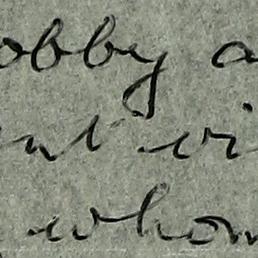 obby a
nt wi
whom